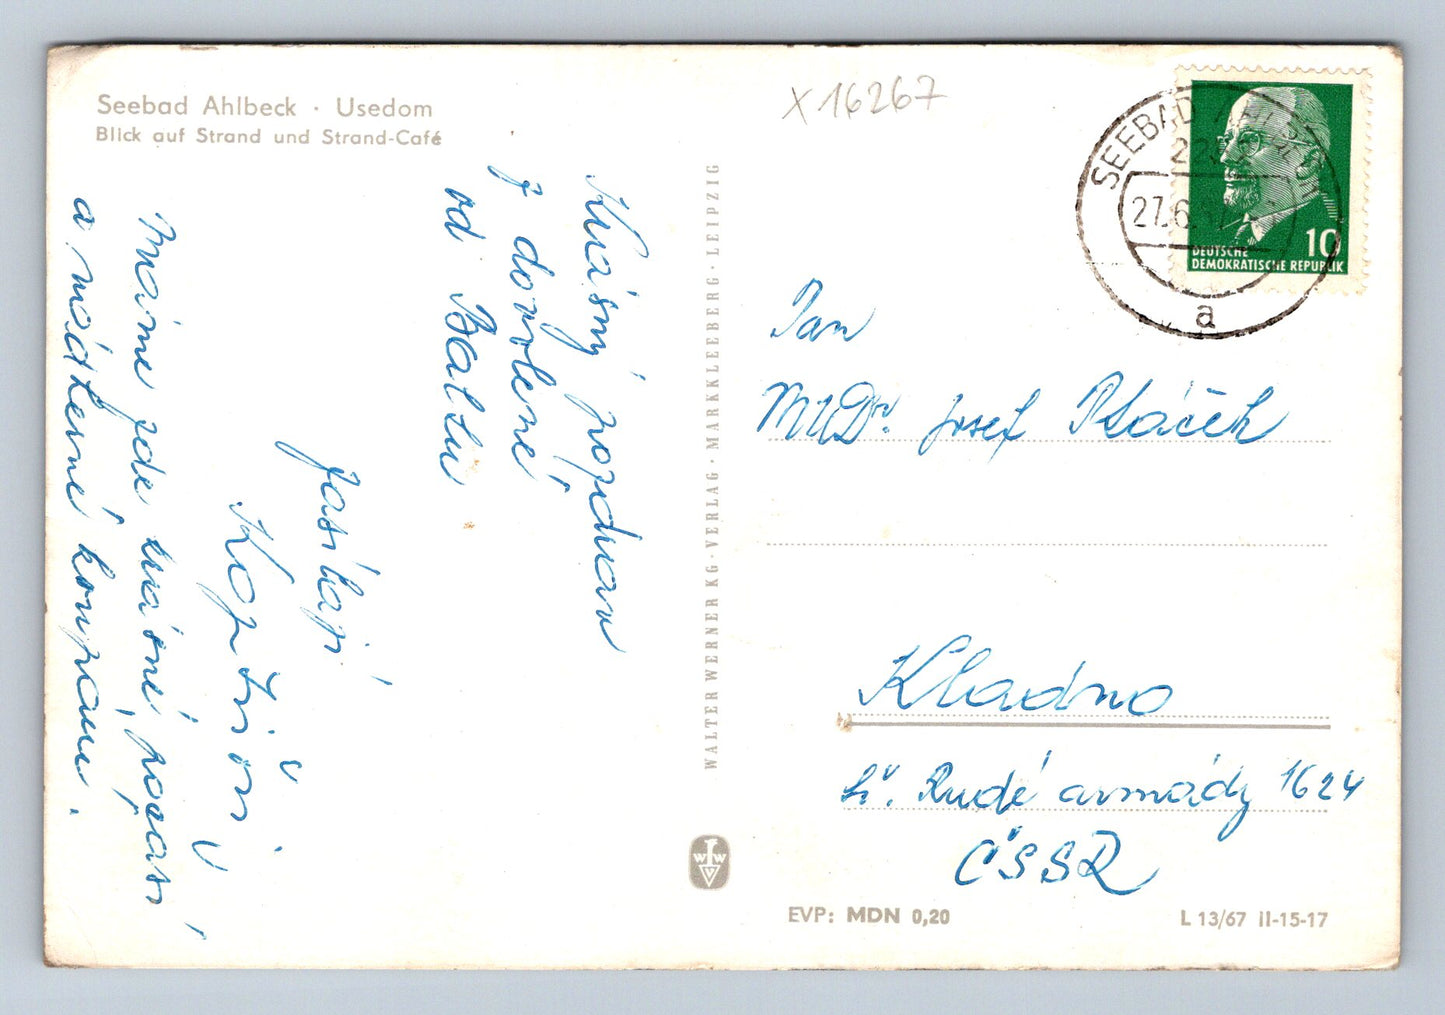 Seebad Ahlbeck · Usedom
Blick auf Strand und Strand-Café
Krásný pozdrav
z dovolené
od Baltu
zasílají
Máme zde krásné počasí
a nádherné koupání.
WALTER WERNER KG · VERLAG · MARKKLEEBERG · LEIPZIG
X 16267
SEEBAD
27.6.67
a
10
DEUTSCHE
DEMOKRATISCHE REPUBLIK
Pan
MUDr. Josef Ptáček
Kladno
tř. Rudé armády 1624
ČSSR
WVW
EVP: MDN 0,20
L 13/67 II-15-17